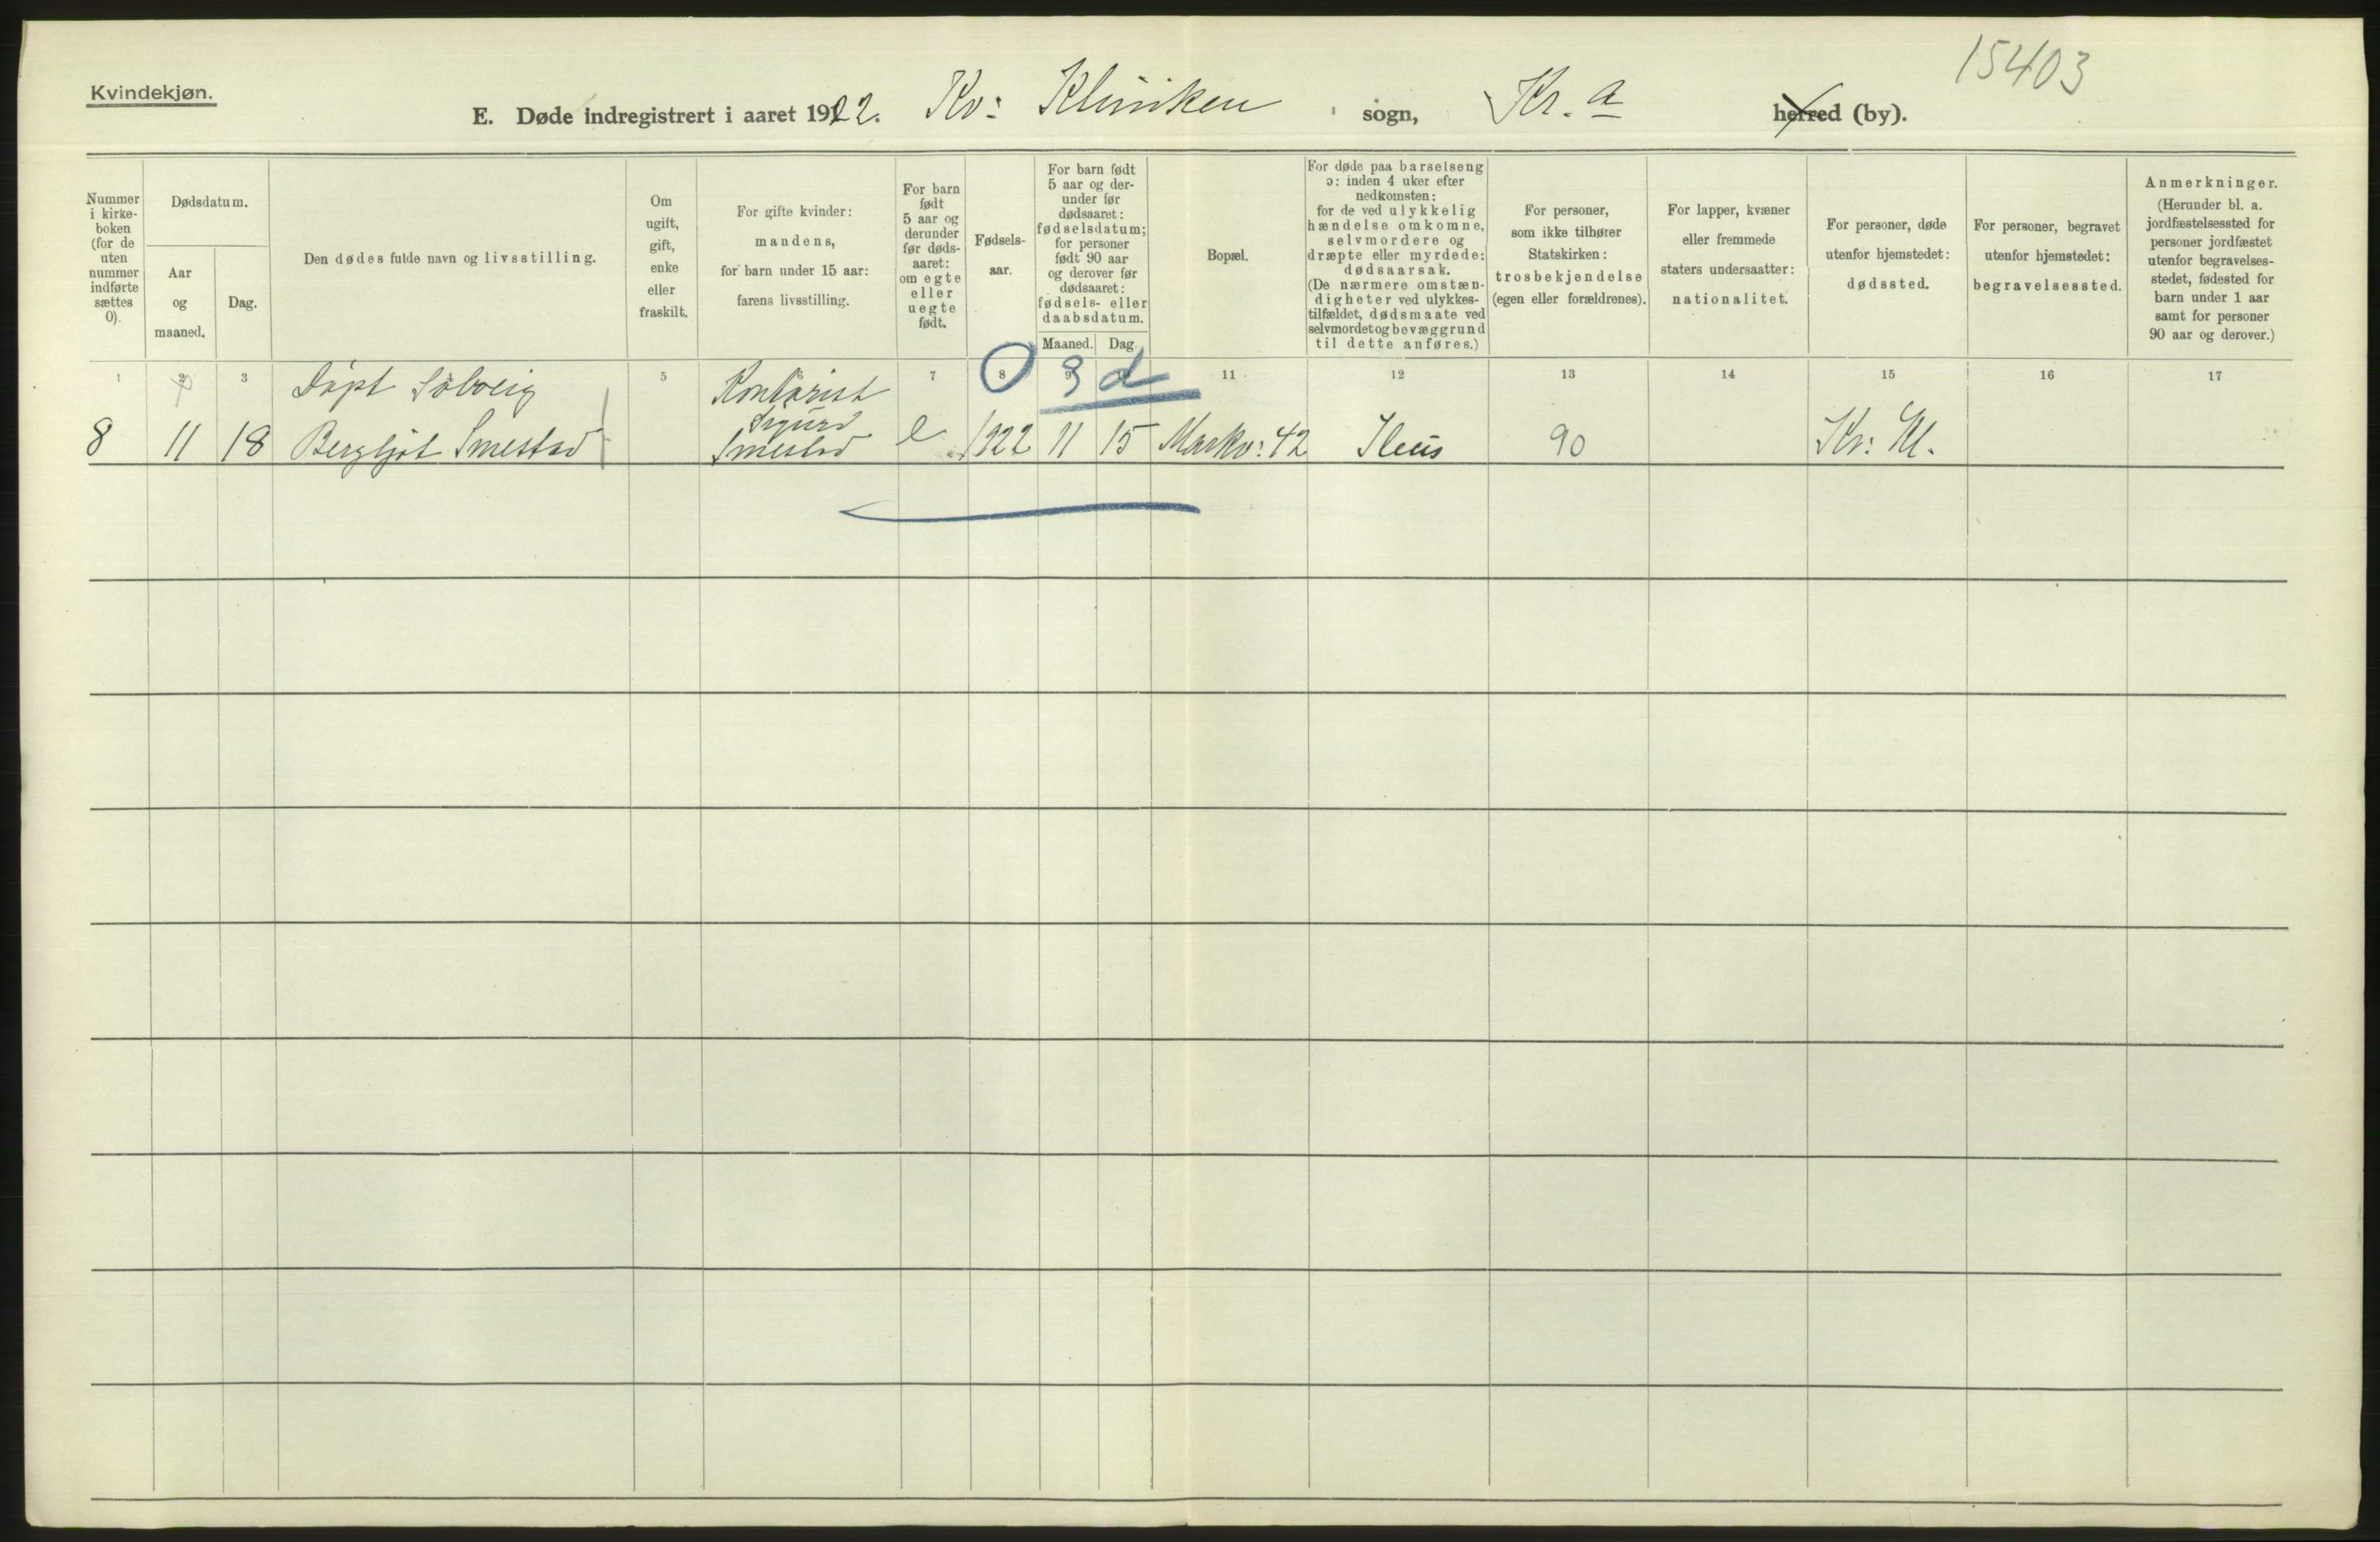 15403
Kvindekjøn.
E. Døde indregistrert i aaret 1922. Kv: Kliniken sogn, Kr. a herred (by).
Nummer
i kirke-
boken
(for de
uten
nummer
indførte
sættes
0).
Dødsdatum.
Aar
og
maaned.
Dag.
Den dødes fulde navn og livsstilling.
Om
ugift,
gift,
enke
eller
fraskilt.
For gifte kvinder:
mandens,
for barn under 15 aar:
farens livsstilling.
For barn
født
5 aar og
derunder
før døds-
aaret:
om egte
eller
uegte
født.
Fødsels-
aar.
For barn født
5 aar og der-
under før
dødsaaret:
fødselsdatum;
for personer
født 90 aar
og derover før
dødsaaret:
fødsels- eller
daabsdatum.
Maaned. Dag.
Bopæl.
For døde paa barselseng
ɔ: inden 4 uker efter
nedkomsten:
for de ved ulykkelig
hændelse omkomne,
selvmordere og
dræpte eller myrdede:
dødsaarsak.
(De nærmere omstæn-
digheter ved ulykkes-
tilfældet, dødsmaate ved
selvmordet og bevæggrund
til dette anføres.)
For personer,
som ikke tilhører
Statskirken:
trosbekjendelse
(egen eller forældrenes).
For lapper, kvæner
eller fremmede
staters undersaatter:
nationalitet.
For personer, døde
utenfor hjemstedet:
dødssted.
For personer, begravet
utenfor hjemstedet:
begravelsessted.
Anmerkninger.
(Herunder bl. a.
jordfæstelsessted for
personer jordfæstet
utenfor begravelses-
stedet, fødested for
barn under 1 aar
samt for personer
90 aar og derover.)
1 2 3 5 6 7 8 9 11 12 13 14 15 16 17
3 d
Døpt Solveig Kontorist
Sigurd
8 11 18 Bergljot Smestad Smestad e 1922 11 15 Markv: 42 Ileus 90 Kv: Kl.